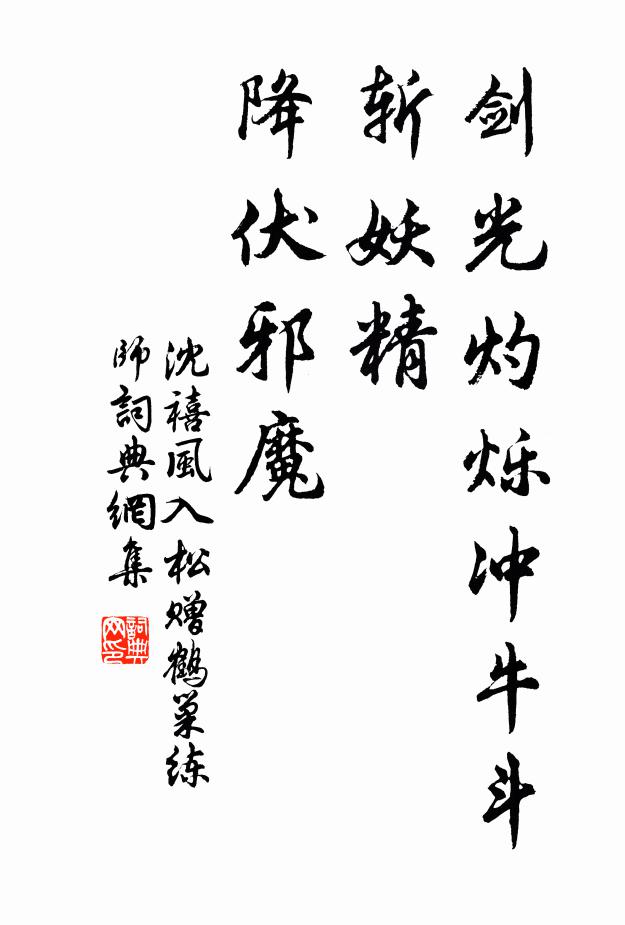 剑光灼烁冲牛斗
斩妖精
降伏邪魔
沈禧風入松赠鶴巢练
師詞典網集
詞典网印